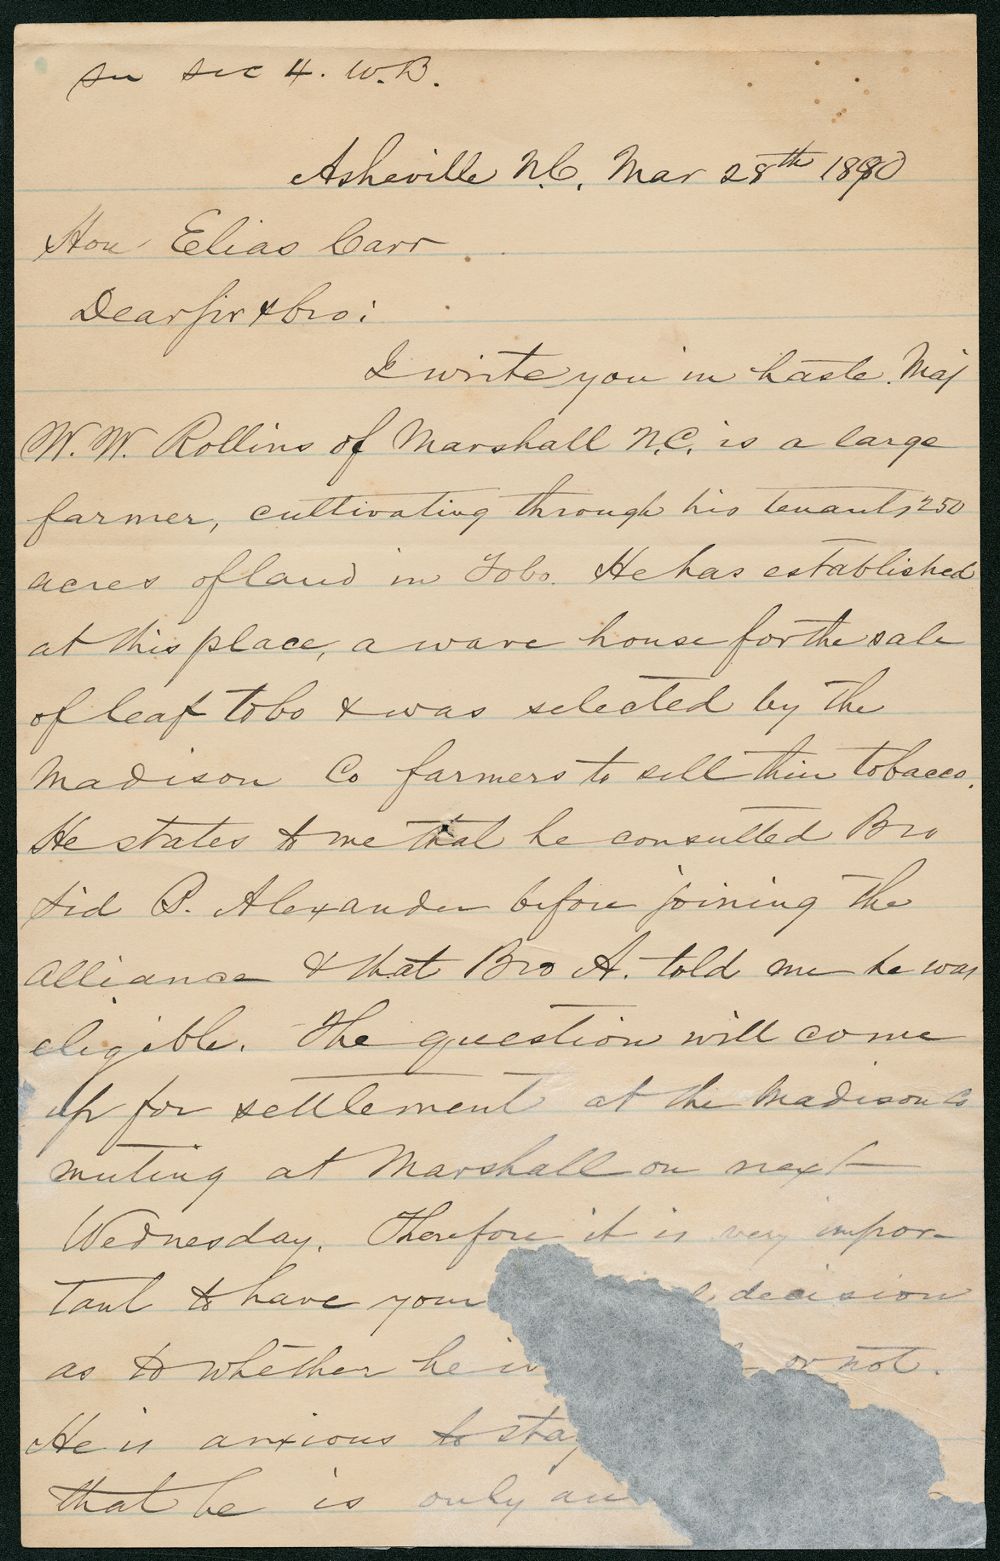 See sec 4. W.B.
Asheville N.C. Mar 28th 1890
Hon Elias Carr
Dear sir & bro:
I write you in haste. Maj
W. W. Rollins of Marshall N.C. is a large
farmer, cultivating through his tenants 250
acres of land in Tobo. He has established
at this place, a ware house for the sale
of leaf tobo & was selected by the
Madison Co farmers to sell thin tobacco.
He states to me that he consulted Bro
Sid P. Alexander before joining the
Alliance & that Bro A. told me he was
eligible. The question will come
up for settlement at the Madison Co
meeting at Marshall on next
Wednesday. Therefore it is very impor-
tant to have your decision
as to whether he is or not.
He is anxious to stay
that he is only an